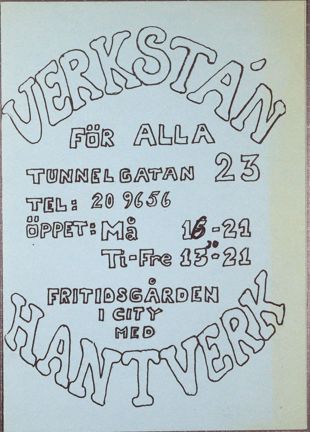 VERKSTÁN
FÖR ALLA
TUNNELGATAN 23
TEL: 20 9656
ÖPPET: Må 15-21
Ti-Fre 13³⁰-21
FRITIDSGÅRDEN
I CITY
MED
HANTVERK